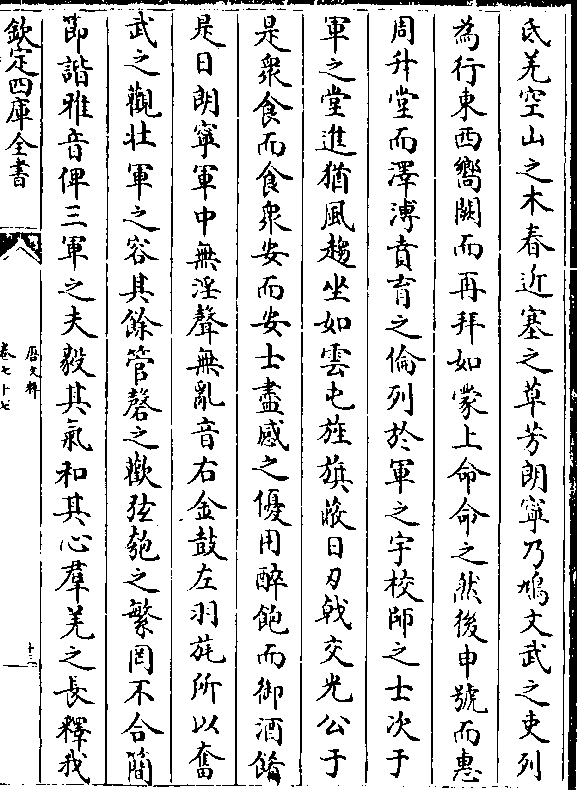 氐羌空山之木春近塞之草芳朗寧乃鳩文武之吏列
為行東西嚮闕而再拜如蒙上命命之然後申號而惠
周升堂而澤溥賁育之倫列於軍之宇校師之士次于
軍之堂進猶風趨坐如雲屯旌旗蔽日刃戟交光公于
是衆食而食衆安而安士盡感之優用醉飽而御酒餚
是日朗寧軍中無淫聲無亂音右金鼓左羽旄所以奮
武之觀壯軍之容其餘管磬之歡弦匏之繁罔不合簡
節諧雅音俾三軍之夫毅其氣和其心羣羌之長釋我
欽定四庫全書
唐文粹
卷七十七